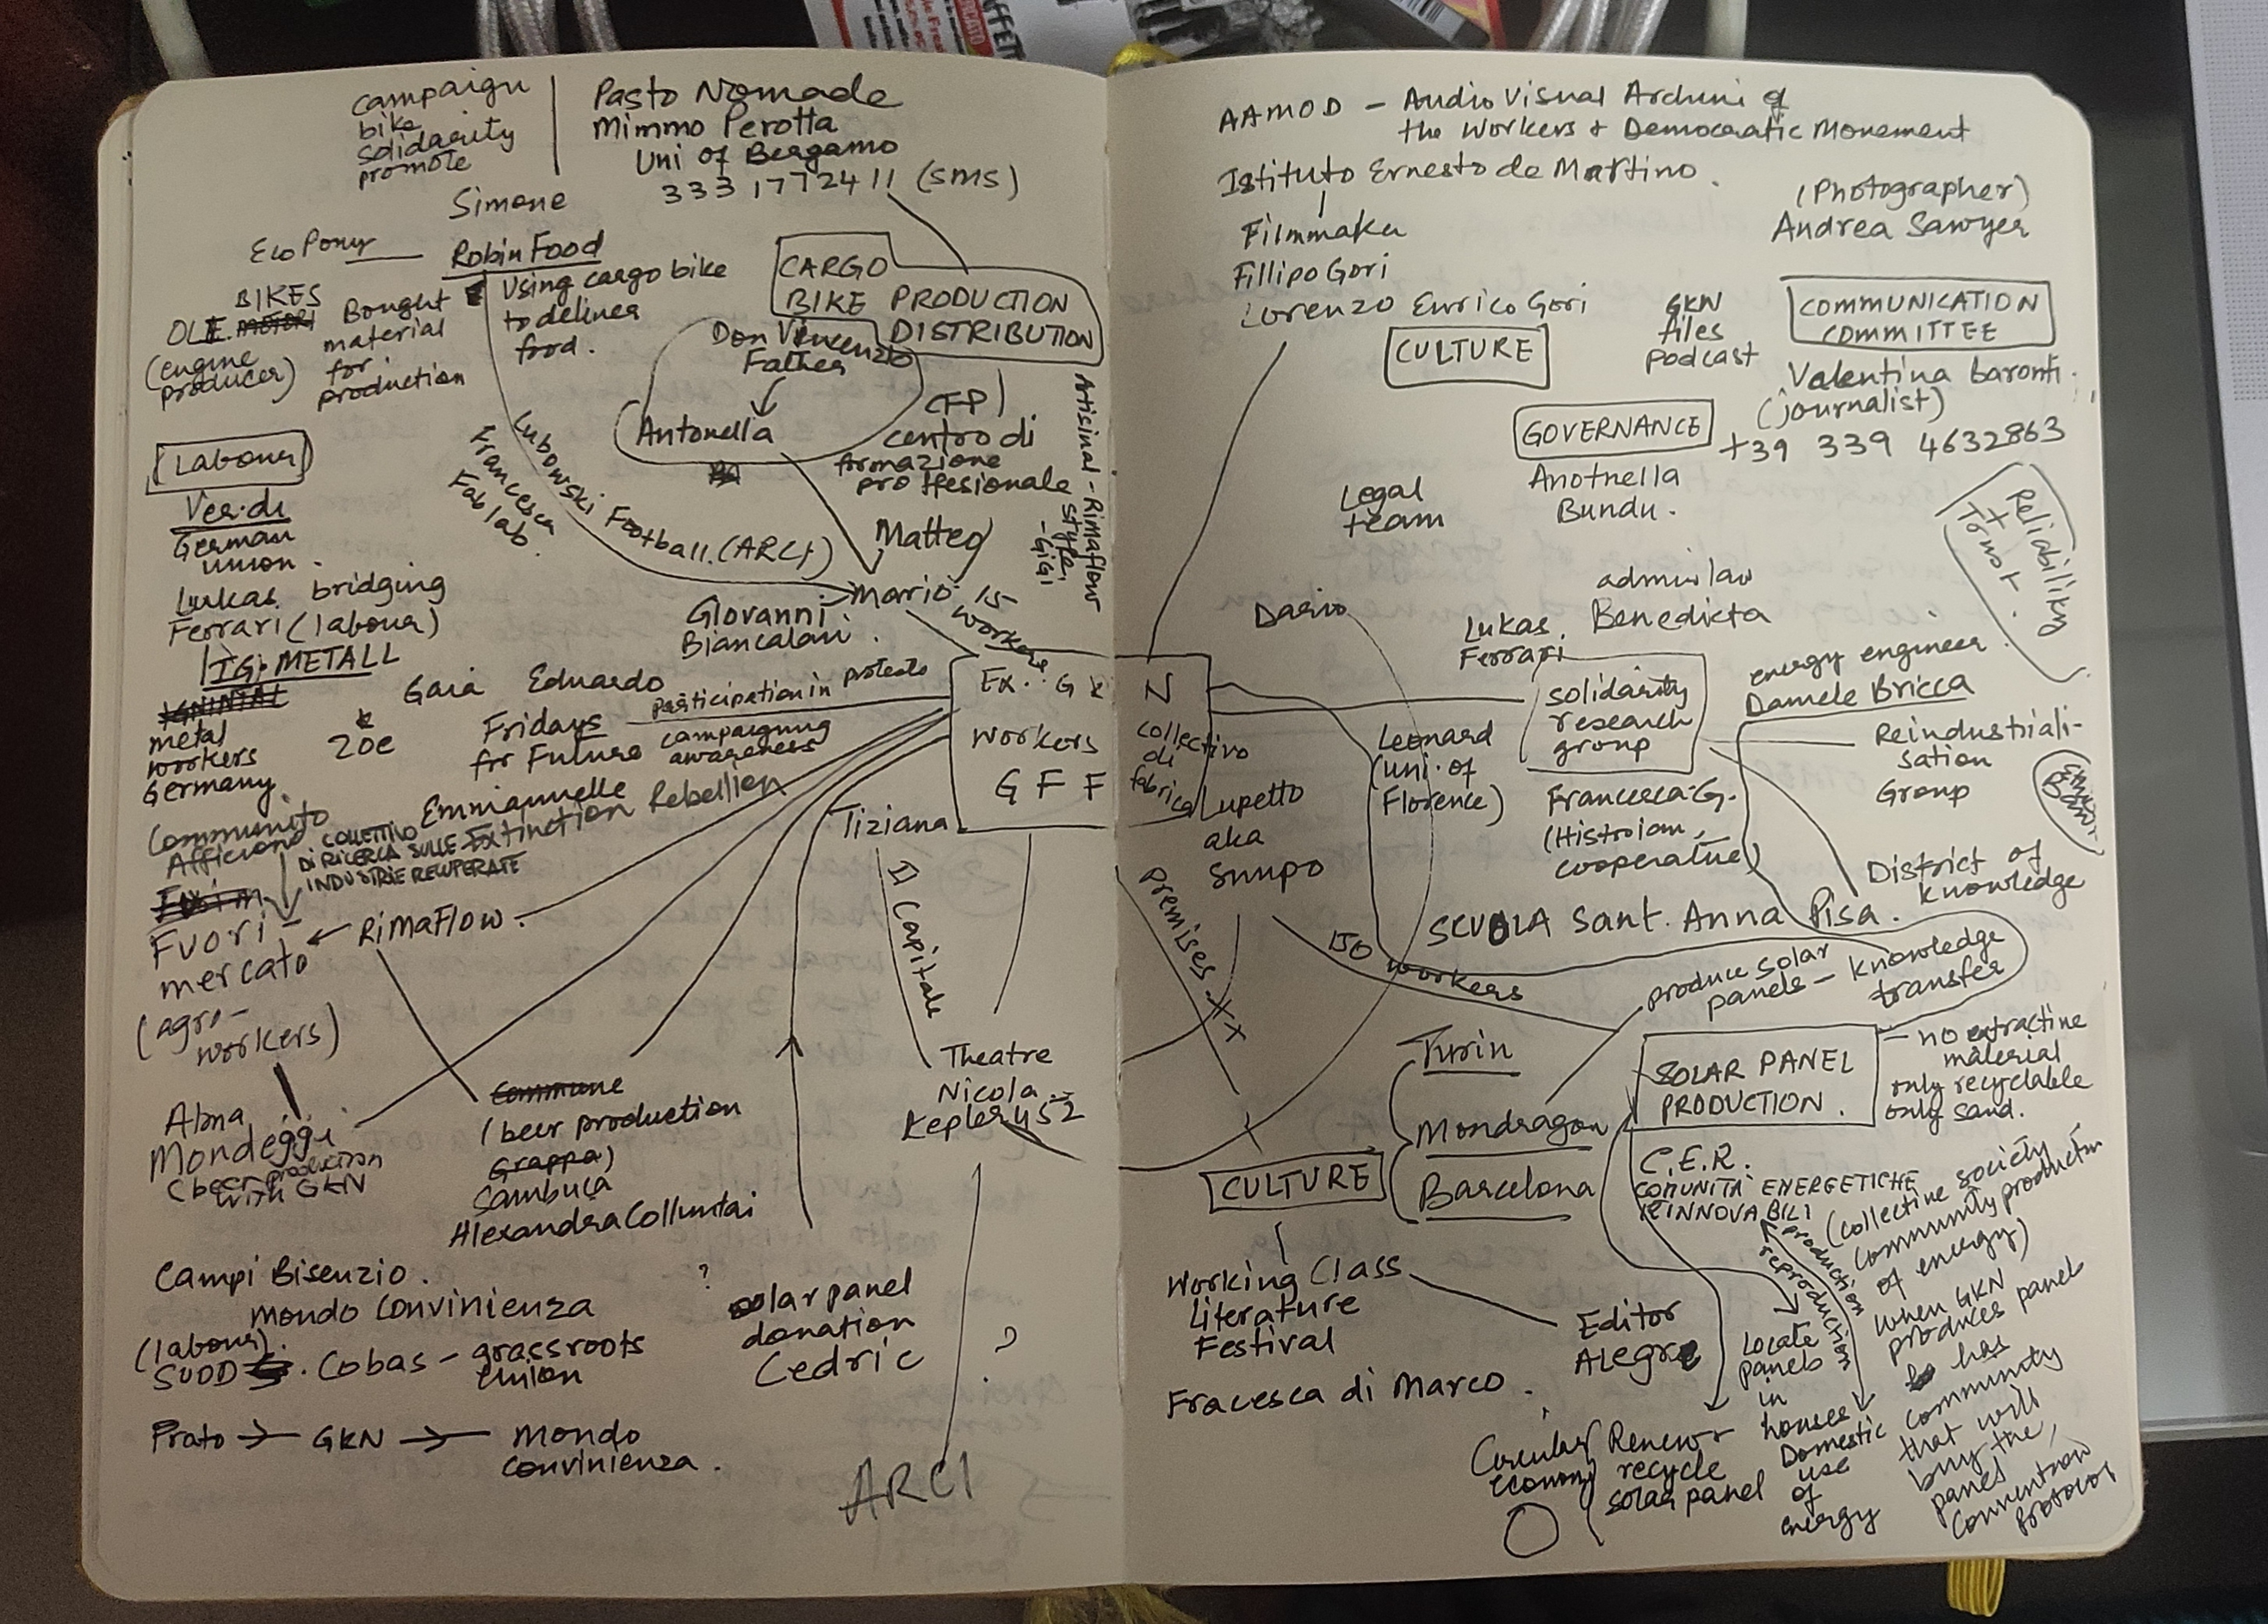 campaign
bike
solidarity
promote
Pasto Nomade
Mimmo Perotta
Uni of Bergamo
333 1772411 (SMS)
Simone
Eco Pony
Robin Food
Using cargo bike
to deliver
food.
BIKES
OLI E. MOTORI
(engine
producer)
Bought
material
for
production
CARGO
BIKE PRODUCTION
DISTRIBUTION
Don Vincenzo
Father
Antonella
CFP)
centro di
formazione
proffesionale
Artisinal - Rimaflow
style,
- GIGI
Lubowski Football. (ARCI)
Francesca
Fab lab.
Matteo
Mario
15
workers
Giovanni
Biancalani.
Labour
Ver.di
German
union.
Lukas bridging
Ferrari (labour)
IG. METALL
metal
workers
Germany.
Gaia Eduardo
&
Zoe
Fridays
for Future
participation in protests
campaigning
awareness
Emmannuelle
Extinction Rebellion
Communito
Afficiono
COLLETTIVO
DI RICERCA SULLE
INDUSTRIE RECUPERATE
Fuori-
mercato
(agro-
workers)
RiMaFlow.
Tiziana
Ex. GKN
workers
GFF
collectivo
di
fabrica
Il Capitale
Theatre
Nicola
Kepler 452
Alma
Mondeggi
(beer production
with GKN
Commune
(beer production
Grappa)
Sambuca
Alexandra Colluntai
Campi Bisenzio.
Mondo Convinienza
(labour).
SUDD . Cobas - grassroots
union
?
solar panel
donation
Cedric
?
Prato → GKN → Mondo
convinienza.
ARCI
AAMOD - Audio Visual Archive of
the Workers + Democratic Movement
Istituto Ernesto de Martino.
Filmmaker
Fillipo Gori
Lorenzo Enrico Gori
(Photographer)
Andrea Sawyer
CULTURE
GKN
files
podcast
COMMUNICATION
COMMITTEE
Valentina baronti.
(journalist)
+39 339 4632863
GOVERNANCE
Anotnella
Bundu.
Legal
team
Reliability
+
Trust.
Dario
admin law
Benedicta
Lukas
Ferrari
solidarity
research
group
energy engineer.
Damele Bricca
Reindustriali-
sation
Group
Leonard
(uni. of
Florence)
Francesca G.
(Histroian,
cooperative)
Lupetto
aka
Snupo
District of
knowledge
SCUOLA Sant. Anna Pisa.
Premises XX
150 workers
produce solar
panels - knowledge
transfer
Turin
Mondragon
Barcelona
SOLAR PANEL
PRODUCTION.
- no extractive
material
only recyclable
only sand.
C.E.R.
COMUNITA' ENERGETICHE
RINNOVABILI
(collective society
community production
of energy)
production
reproduction
CULTURE
Working Class
Literature
Festival
Editor
Alegre
Fracesca di Marco.
Locate
panels
in
houses
Domestic
use
of
energy
When GKN
produces panels
has
community
that will
buy the
panel
Convention
protocol
Circular
economy
Renew +
recycle
solar panel